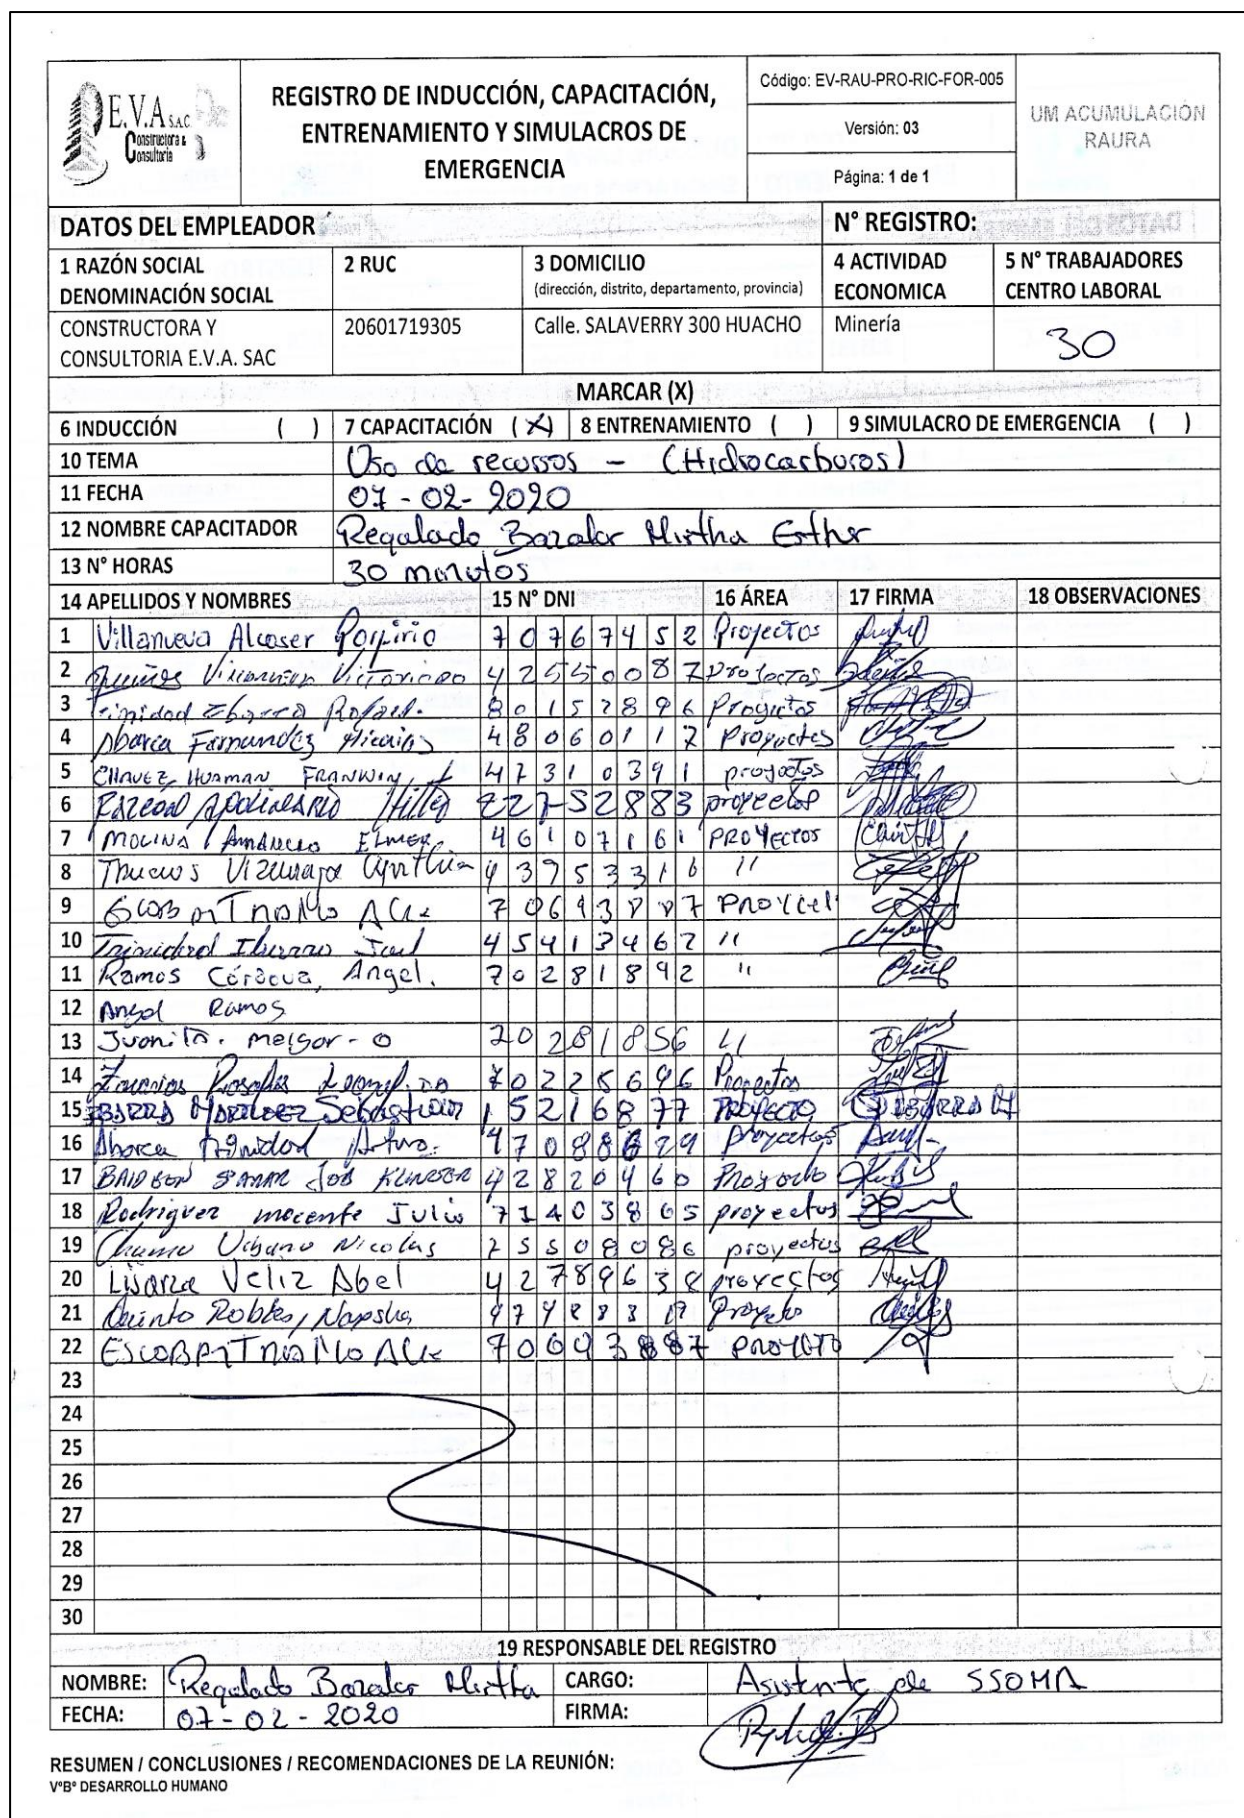 E.V.A SAC
Constructora &
Consultoria
REGISTRO DE INDUCCIÓN, CAPACITACIÓN,
ENTRENAMIENTO Y SIMULACROS DE
EMERGENCIA
Código: EV-RAU-PRO-RIC-FOR-005
Versión: 03
Página: 1 de 1
UM ACUMULACIÓN
RAURA
DATOS DEL EMPLEADOR
N° REGISTRO:
1 RAZÓN SOCIAL
DENOMINACIÓN SOCIAL
2 RUC
3 DOMICILIO
(dirección, distrito, departamento, provincia)
4 ACTIVIDAD
ECONOMICA
5 N° TRABAJADORES
CENTRO LABORAL
CONSTRUCTORA Y
CONSULTORIA E.V.A. SAC
20601719305
Calle. SALAVERRY 300 HUACHO
Minería
30
MARCAR (X)
6 INDUCCIÓN ( ) 7 CAPACITACIÓN (X) 8 ENTRENAMIENTO ( ) 9 SIMULACRO DE EMERGENCIA ( )
10 TEMA Uso de recursos - (Hidrocarburos)
11 FECHA 07-02-2020
12 NOMBRE CAPACITADOR Regalado Bazalar Mirtha Esther
13 N° HORAS 30 minutos
14 APELLIDOS Y NOMBRES 15 N° DNI 16 ÁREA 17 FIRMA 18 OBSERVACIONES
1 Villanueva Alcoser Porpirio 70767452 Proyectos
2 42550087 Proyectos
3 Rafael. 80152896 Proyectos
4 Abarca Fernandez 48060117 Proyectos
5 CHAVEZ HUAMAN FRANWIN 47310391 proyectos
6 22752883 proyectos
7 MOLINA ELMER 46107161 PROYECTOS
8 "
9 Proyect
10 Trinidad 45413462 "
11 Ramos Córdova, Angel. 70281892 "
12 Angol Ramos
13 Juanito. melgor - o 20281856 "
14 Rosales 70225696 Proyectos
15 IBARRA Sebastian 15216877 PROYECTO
16 Abarca Trinidad Arturo. proyectos
17 JOB 42820460 Proyecto
18 Rodriguez mocente Julio 71403865 proyectos
19 Urbano Nicolas proyectos
20 Livarza Veliz Abel proyectos
21 Quinto Robles, Proyecto
22 PROYETO
23
24
25
26
27
28
29
30
19 RESPONSABLE DEL REGISTRO
NOMBRE: Regalado Bazalar Mirtha CARGO: Asistente de SSOMA
FECHA: 07-02-2020 FIRMA:
RESUMEN / CONCLUSIONES / RECOMENDACIONES DE LA REUNIÓN:
V°B° DESARROLLO HUMANO